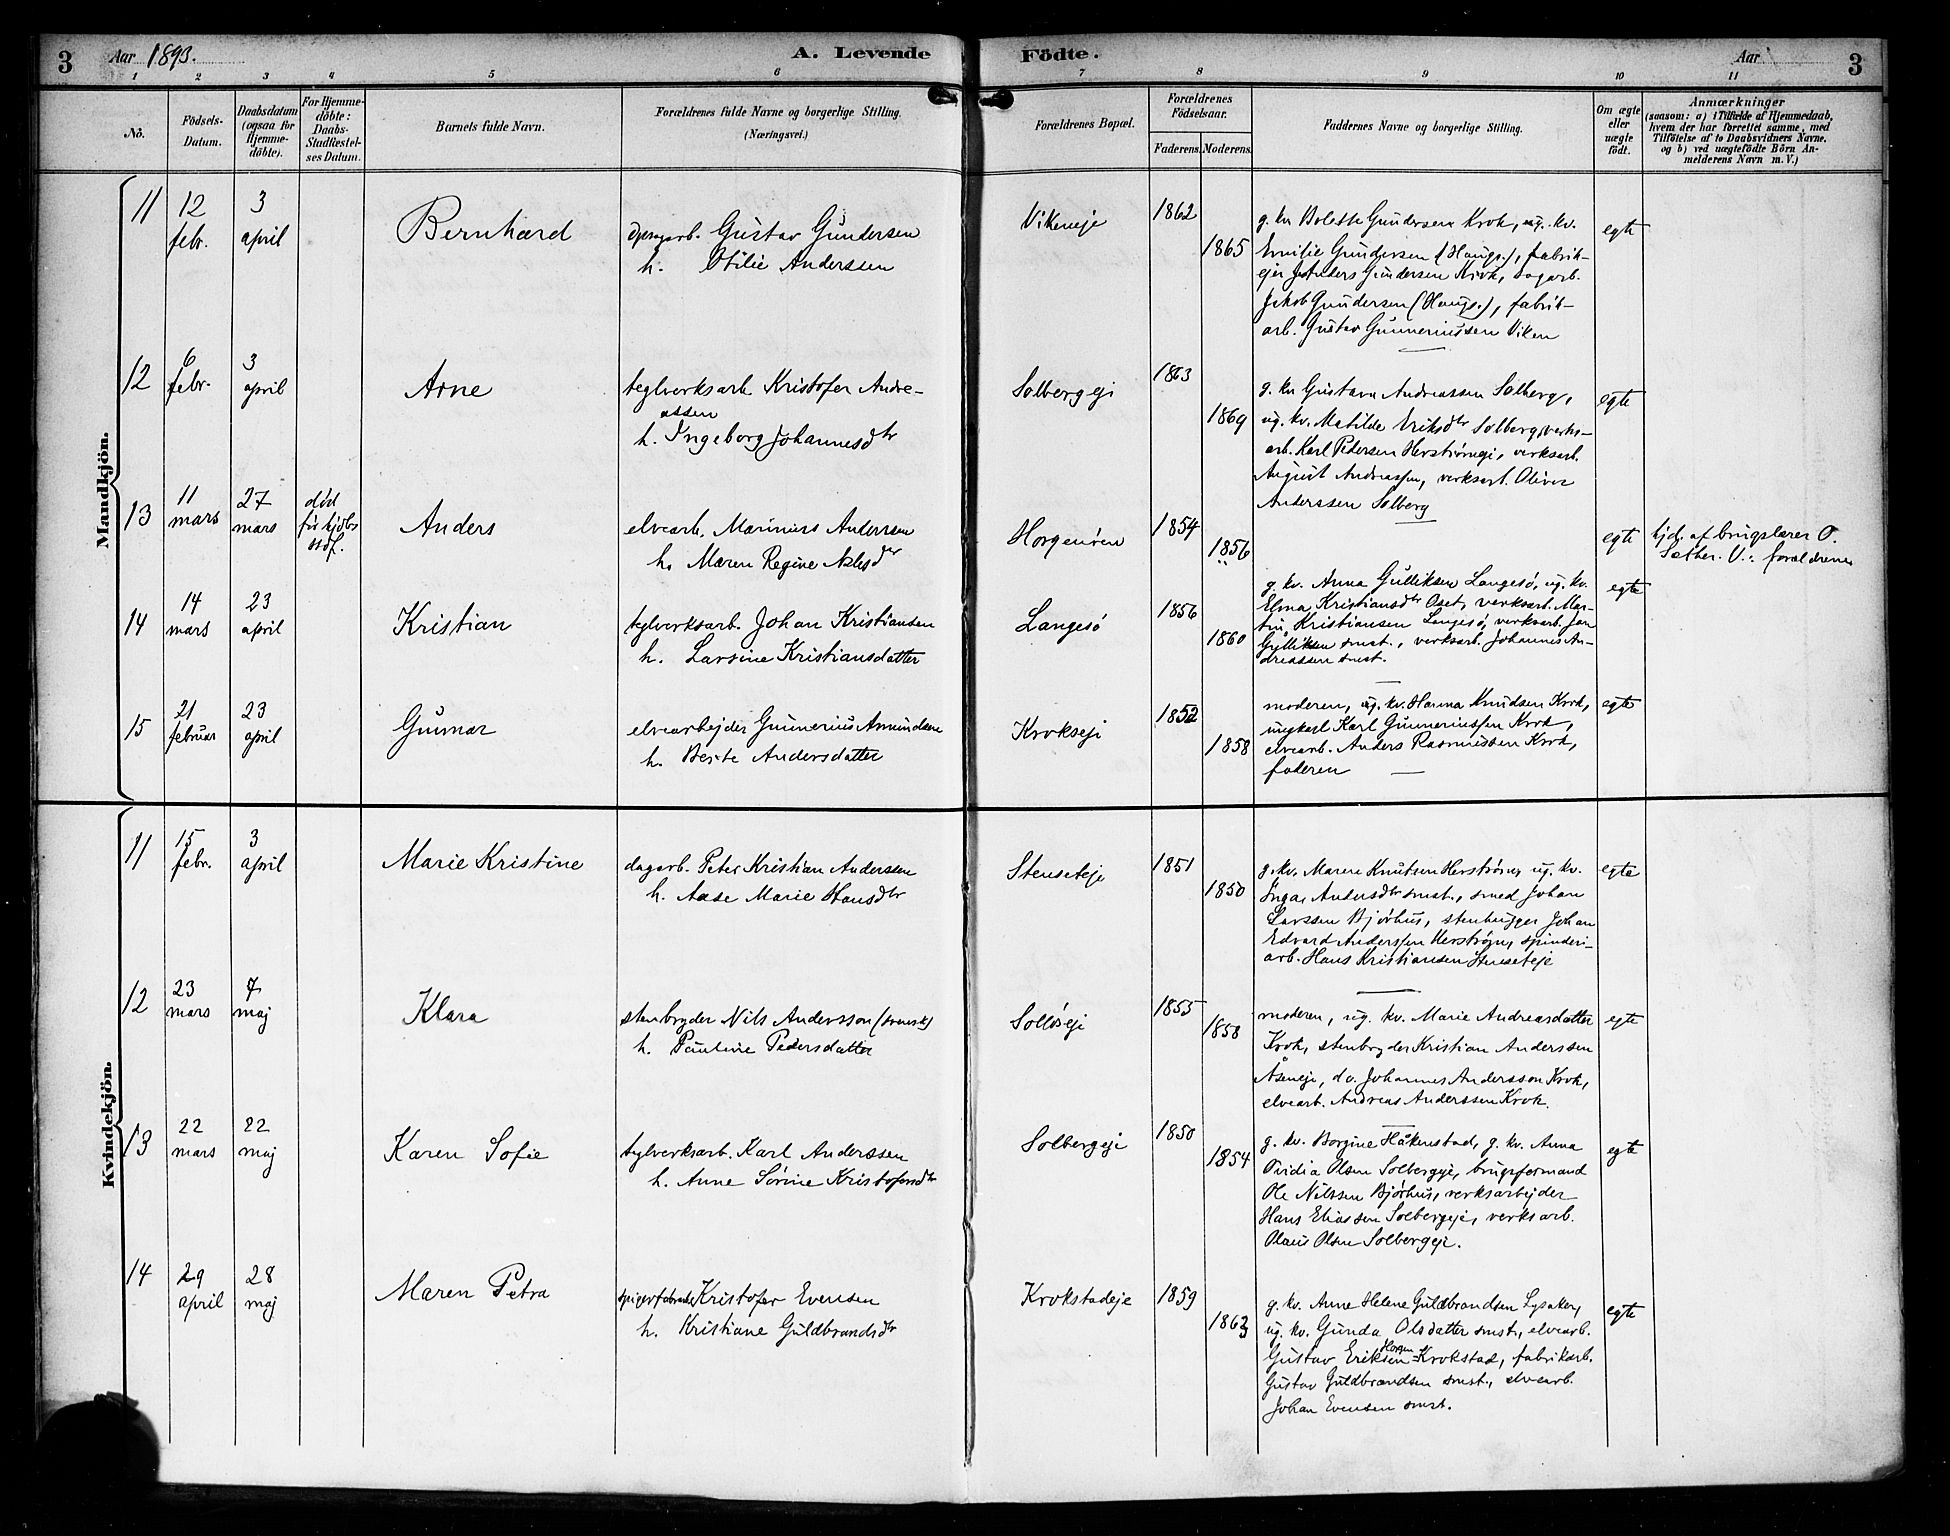 3 Aar 1893. A. Levende Födte. Aar 3
1 2 3 4 5 6 7 8 9 10 11
No.
Födsels-Datum.
Daabsdatum (ogsaa for Hjemme-döbte).
For Hjemme-döbte: Daabs-Stadfæstel-ses Datum.
Barnets fulde Navn.
Forældrenes fulde Navne og borgerlige Stilling.
(Næringsvei.)
Forældrenes Bopæl.
Forældrenes Födselsaar.
Faderens. Moderens.
Faddernes Navne og borgerlige Stilling.
Om ægte eller uægte födt.
Anmærkninger
(saasom: a) i Tilfælde af Hjemmedaab,
hvem der har forrettet samme, med
Tilföielse af to Daabsvidners Navne,
og b) ved uægtefödte Börn An-
melderens Navn m. V.)
Mandkjön.
11 12 febr. 3 april Bernhard
Gustav Gundersen
h. Otilie Anderssen
Vikeneje 1862 1865
g. kv Bolette Gundersen Krok, ug. kv.
Emilie Gundersen (Haugs.), fabrik-
ejer Anders Gundersen Krok, sagarb.
Jakob Gundersen (Haugs.), fabrik-
arb. Gustav Gunneriussen Viken
egte
12 6 febr. 3 april Arne
teglverksarb Kristofer Andre-
assen
h. Ingeborg Johannesdtr
Solbergeje 1863 1869
g. kv Gustava Andreassen Solberg,
ug. kv. Matilde Eriksdtr Solberg, verks-
arb. Karl Pedersen Herstrømeje, verksarb.
August Andreassen, verksarb. Oliver
Anderssen Solberg
egte
13 11 mars 27 mars død før kjdbs stdf. Anders
elvearb. Marinius Andersen
h. Maren Regine
Horgenøren 1854 1856
egte
hjd. af brugslærer O.
Sæther. V.: forældrene
14 14 mars 23 april Kristian
teglverksarb. Johan Kristiansen
h. Larsine Kristiansdatter
Langesø 1856 1860
g. kv. Anna Gulliksen Langesø, ug. kv.
Elina Kristiansdtr Oset, verksarb. Mar-
tin Kristiansen Langesø, verksarb. Jan
Gulliksen smst., verksarb. Johannes An-
dreassen smst.
egte
15 21 februar 23 april Gunnar
elvearbejder Gunnerius Amundsen
h. Berte Andersdatter
Krokseje 1852 1858
moderen, ug. kv. Hanna Knudsen Krok,
ungkarl Karl Gunneriussen Krok,
elvearb. Anders Rasmussen Krok,
faderen
egte
Kvindekjön.
11 15 febr. 3 april Marie Kristine
dagarb. Peter Kristian Anderssen
h. Aase Marie Hansdtr
Stenseteje 1851 1850
g. kv. Maren Knutsen Herstrøm, ug. kv.
Inga Andersdtr smst., smed Johan
Larssen Bjørhus, stenhugger Johan
Edvard Anderssen Herstrøm, spinderi-
arb. Hans Kristiansen Stenseteje
egte
12 23 mars 7 maj Klara
stenbryder Nils Andersson (svensk)
h. Pauline Pedersdatter
Solløseje 1855 1858
moderen, ug. kv. Marie Andreasdatter
Krok, stenbryder Kristian Anderssen
Åseneje, do. Johannes Andersson Krok,
elvearb. Andreas Anderssen Krok.
egte
13 22 mars 22 maj Karen Sofie
teglverksarb. Karl Anderssen
h. Anne Sørine Kristofersdtr
Solbergeje 1850 1854
g. kv. Borgine Håkenstad, g. kv. Anna
Ovidia Olsen Solbergeje, brugsformand
Ole Nilssen Bjørhus, verksarbejder
Hans Eliassen Solbergeje, verksarb.
Olaus Olsen Solbergeje.
egte
14 29 april 28 maj Maren Petra
Kristofer Evensen
h. Kristiane Guldbrandsdtr
Krokstadeje 1859 1863
g. kv. Anne Helene Guldbrandsen Lysaker,
ug. kv. Gunda Olsdatter smst, elvearb.
Gustav Eriksen Horgen Krokstad, fabrikarb.
Gustav Guldbrandsen smst., elvearb.
Johan Evensen smst.
egte